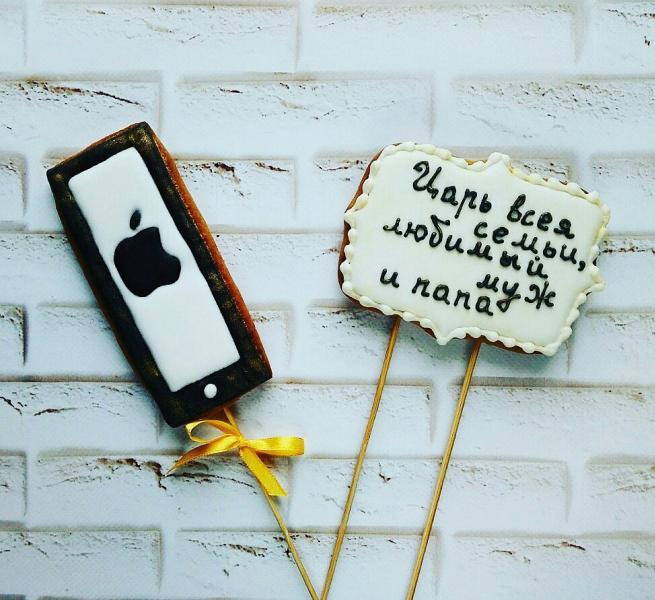 Царь всея
семьи,
любимый
муж
и папа